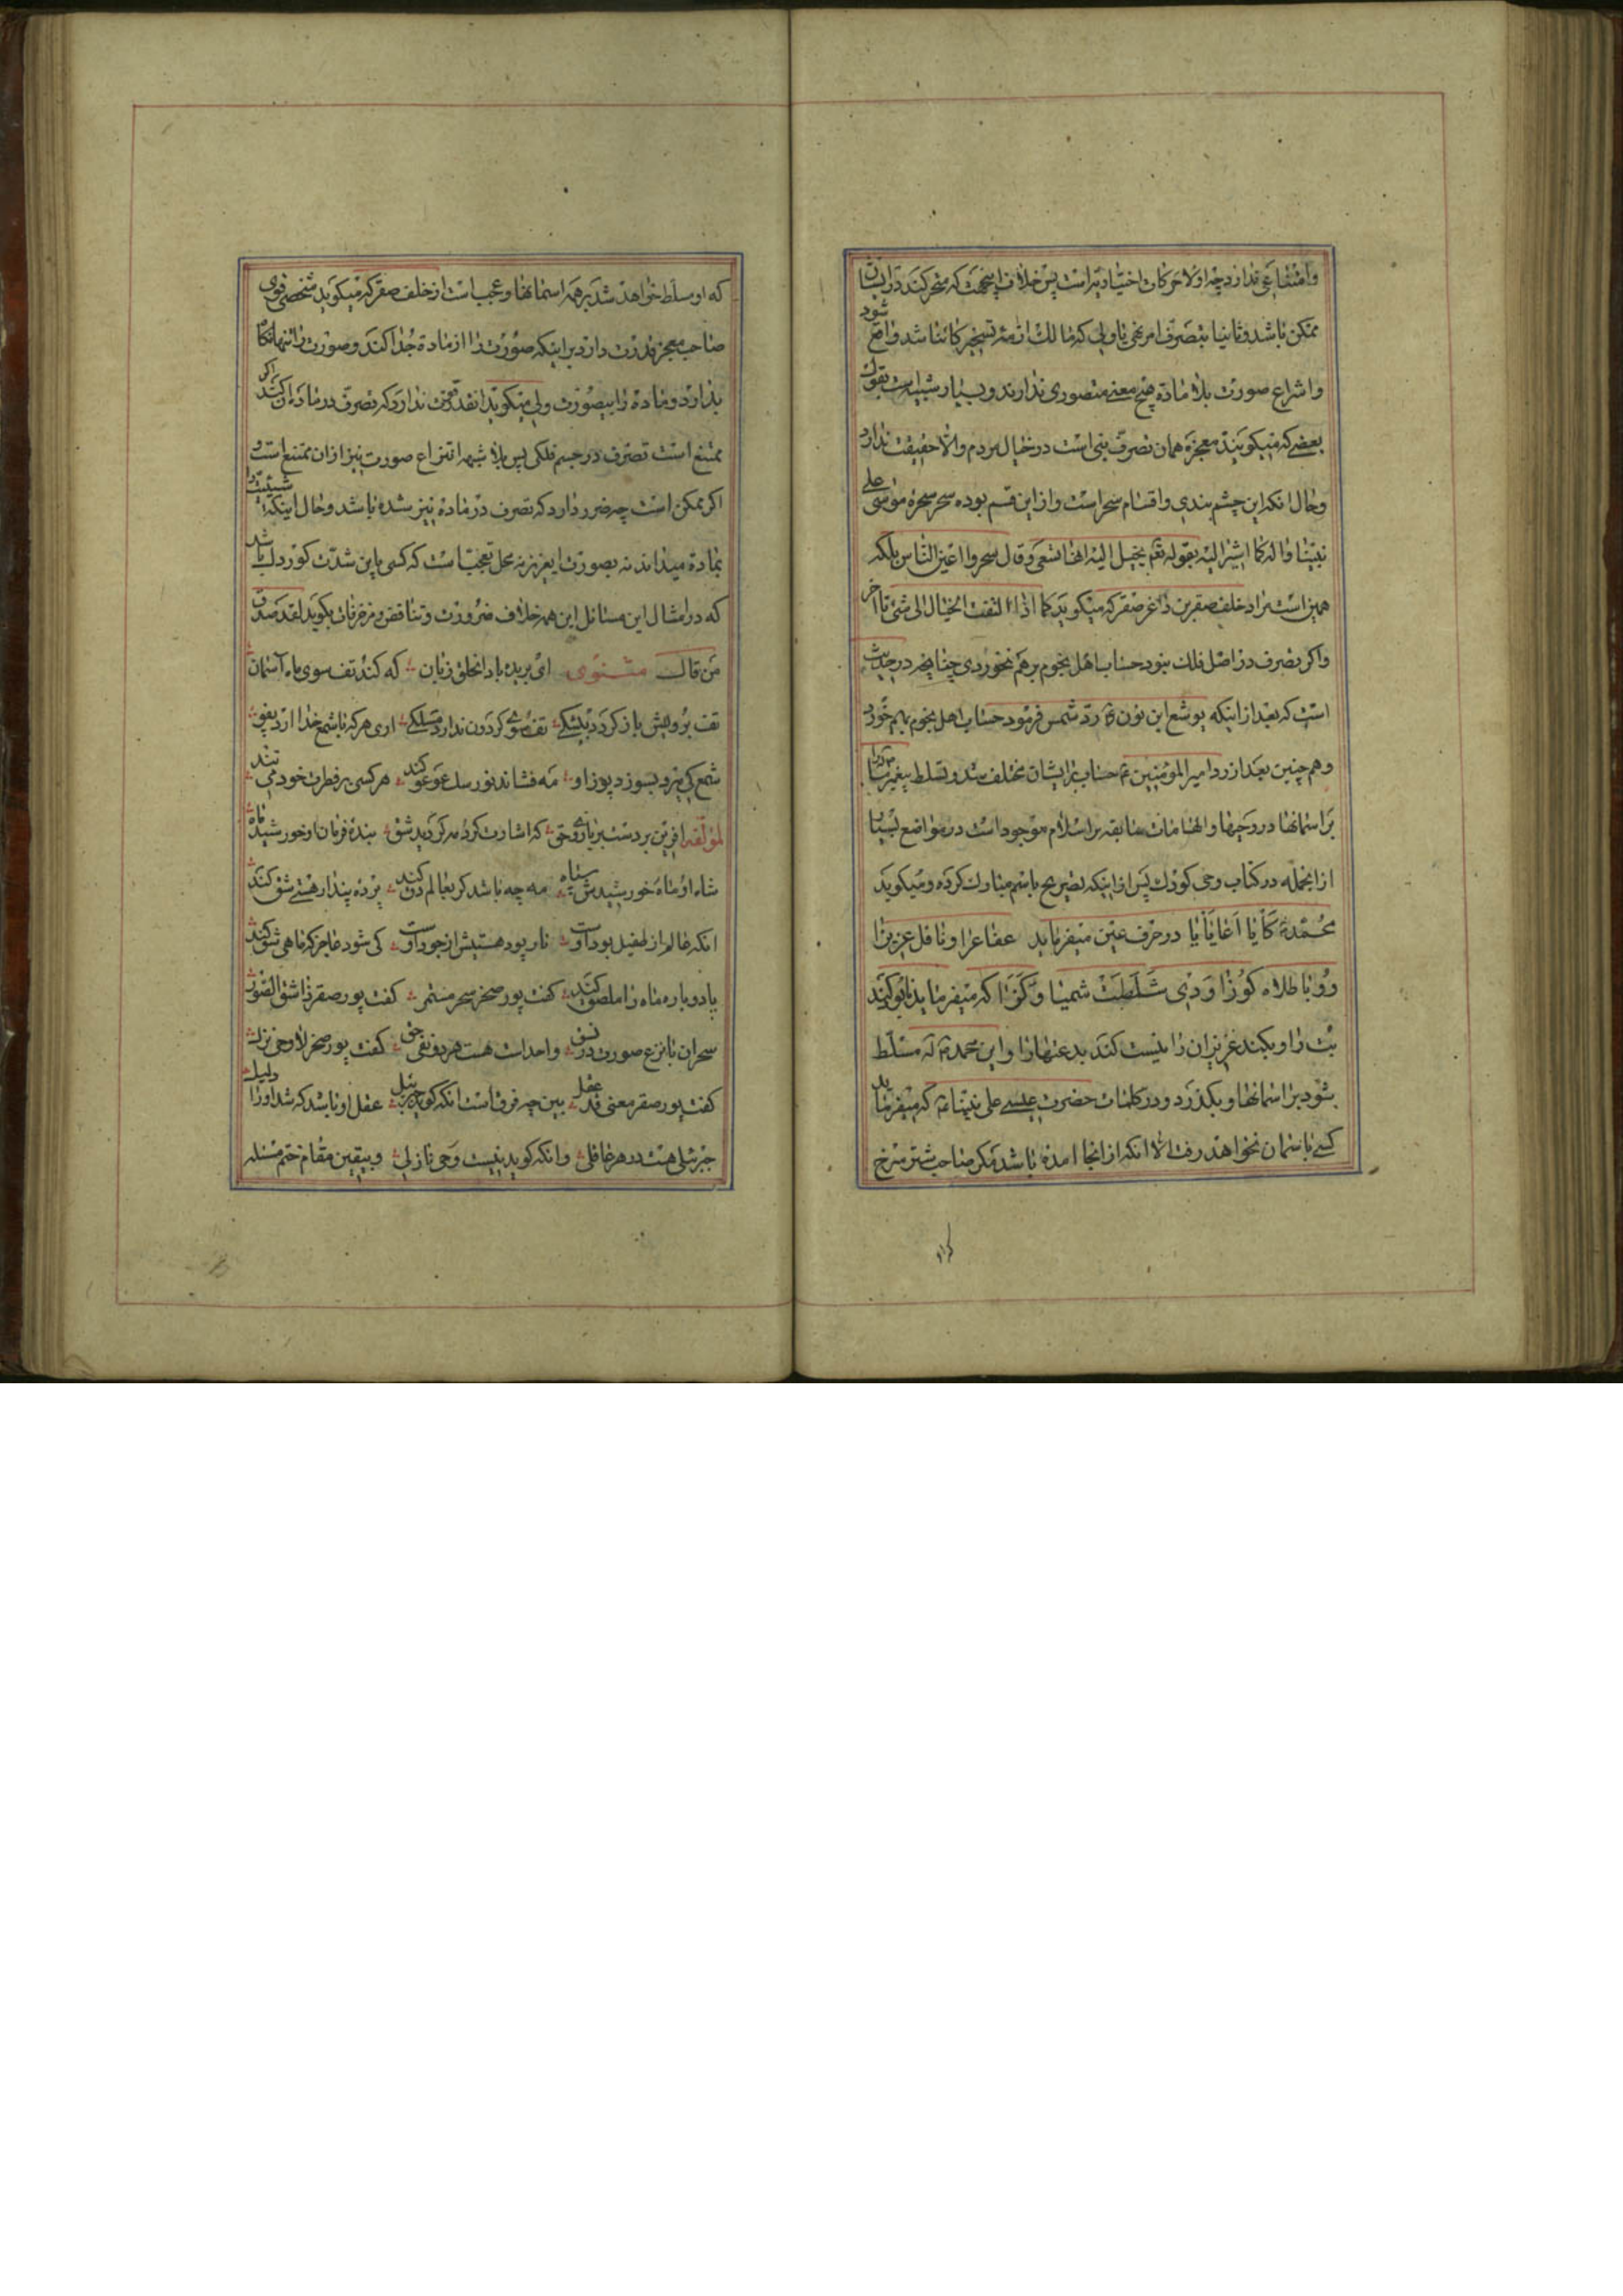 وامتناعی ندارد چه اولا حرکات اختیاریه است پس خلاف اینجهت که متحرکند در ایشان
ممکن باشد و ثانیا بتصرف امر نبی یا ولی که مالک ازمه تسخیر کاینا باشد واقع شود
وانتزاع صورت بلا ماده هیچ معنی متصوری ندارند و بسیار شبیه است بقول
بعضی که میکویند معجزه همان تصرف نبی است در خیال مردم والا حقیقت ندارد
وحال انکه این چشم بندی واقسام سحر است واز این قسم بوده سحر سحرهٔ موسی علی
نبینا واله کما اشیر الیه بقوله تعم یخیل الیه انها تسعی وقال سحروا اعین الناس بلکه
همین است مراد خلف صقر بن ذاغر صقر که میکوید کما اذا التفت الخیال الی شیء تا آخر
واکر تصرف در اصل فلک بنود حساب اهل نجوم برهم نخوردی چنانچه در حدیث
است که بعد از اینکه یوشع ابن نون ع رد شمس فرمود حساب اهل نجوم بهم خورد
وهم چنین بعد از رد امیر المؤمنین ع حساب برایشان مختلف شد وتسلط پیغمبر ما
بر اسمانها در وحیها والهامات سابقه بر اسلام موجود است در مواضع بسیار
از انجمله در کتاب وحی کودک پس از اینکه تصریح باسم مبارک کرده ومیکوید
محمد کایا اعایایا در حرف عین میفرماید عقا عرا وناقل عزیزا
وونا طلاه کوزا ودی شلطت شمیا وکزا که میفرماید نابود کند
بت را وبکند عزیزان را نیست کند بدعتها را واین محمد ص مسلط
بشود بر اسمانها وبکذرد ودر کلمات حضرت عیسی علی نبینا ع که میفرماید
کسی باسمان نخواهد رفت الا انکه از انجا امده باشد مکر صاحب شتر سرخ
که او مسلط خواهد شد بر همه اسمانها وعجب است از خلف صقر که میکوید شخصی قوی
صاحب معجز قدرت دارد بر اینکه صورت را از ماده جدا کند وصورت را تنها نکا
بدارد وماده را بیصورت ولی میکوید انقدر قوت ندارد که تصرف در ماده ان کند اکر
ممتنع است تصرف در جسم فلکی پس بلا شبهه انتزاع صورت نیز از ان ممتنع است و
اکر ممکن است چه ضرر دارد که تصرف در ماده نیز شده باشد وحال اینکه شیئیت را
بماده میدانند نه بصورت ایعزیز نه محل تعجب است که کسی باین شدت کور دل باشد
که در امثال این مسائل این همه خلاف ضرورت وتناقض ومزخرفات بکوید لقد صدق
من قال مثنوی ای بریده باد انحلق وزبان که کند تف سوی ماه آسمان
تف برویش باز کردد بیشکی تف سوی کردون ندارد مسلکی اری هر که با شمع خدا ارد پفو
شمع کی میرد بسوزد پوز او مه فشاند نور سک عوعو کند هر کسی بر فطرت خود می تند
لمؤلفه افرین بر دست بر بازوی حق که اشارت کرد مه کردید شق بنده فرمان او خورشید ماه
شاه او ماه خورشیدش سپاه مه چه باشد کر بعالم دق کند پرده پندار هستی شق کند
انکه عالم از طفیل بود اوست تار پود هستیش از جود اوست کی شود عاجز که ماهی شق کند
یا دو باره ماه را ملصق کند کفت پور صخر سحر مستمر کفت پور صقر ذا شق الصور
سحر ان با نزع صورت در نسق واحد است هست هر دو نفی حق کفت پور صخر لا وحی نزل
کفت پور صقر معنی قد عقل بین چه فرق است انکه کوید جبرئیل عقل او باشد که شد او را دلیل
جبرئیلی هست در هر عاقلی وانکه کوید نیست وحی نازلی وبیقین مقام ختم مسئله